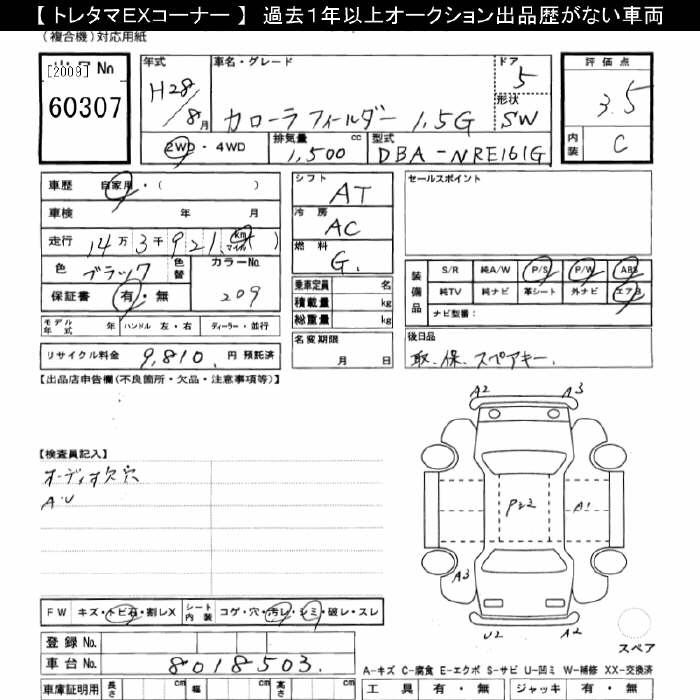 【 トレタマEXコーナー 】 過去1年以上オークション出品歴がない車両
(複合機)対応用紙
[2009] No
60307
年式 H28/8月
車名・グレード カローラ フィールダー 1.5G
ドア 5
形状 SW
評価点 3.5
内装 C
2WD・4WD
排気量 1,500 cc
型式 DBA-NRE161G
車歴 自家用・( )
車検 年 月
走行 14万3千921 km マイル )
色 ブラック 色替
カラーNo. 209
保証書 有・無
シフト AT
冷房 AC
燃料 G.
乗車定員 名
積載量 kg
総重量 kg
セールスポイント
装備品 S/R 純A/W P/S P/W ABS
純TV 純ナビ 革シート 外ナビ エアB
ナビ型番:
モデル年式 年 ハンドル 左・右 ディーラー・並行
リサイクル料金 9,810. 円 預託済
名変期限 月 日
後日品
取.保.スペアキー.
【出品店申告欄(不良箇所・欠品・注意事項等)】
【検査員記入】
オーディオ欠穴
A・U
A2 A3
P22 A1
A3
U2 A2
スペア
FW キズ・トビ石・割レX シート内装 コゲ・穴・汚レ・シミ・破レ・スレ
登録No.
車台No. 8018503.
A-キズ C-腐食 E-エクボ S-サビ U-凹ミ W-補修 XX-交換済
車庫証明用 長さ cm 幅 cm 高さ cm
工具 有・無 ジャッキ 有・無